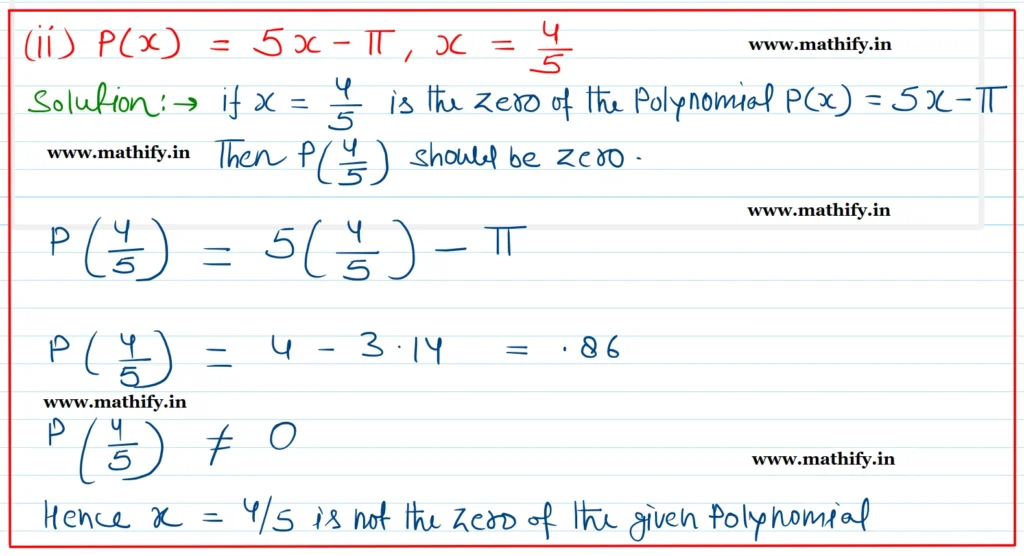 (ii) P(x) = 5x - π, x = 4/5 www.mathify.in
Solution:→ if x = 4/5 is the zero of the Polynomial P(x) = 5x - π
www.mathify.in Then P(4/5) should be zero.
www.mathify.in
P(4/5) = 5(4/5) - π
P(4/5) = 4 - 3.14 = .86
www.mathify.in
P(4/5) ≠ 0
www.mathify.in
Hence x = 4/5 is not the zero of the given Polynomial